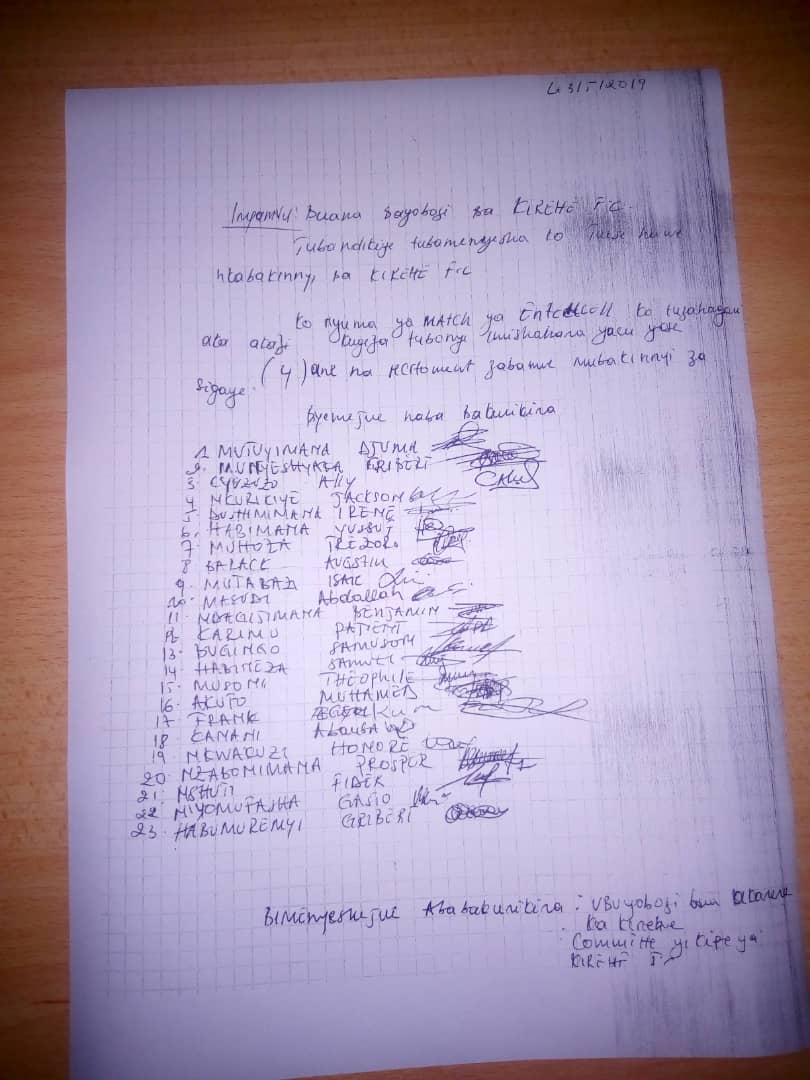 Le 3/5/2019
Impamvu: Buana bayobozi ba KIREHE F.C.
Tubandikiye tubamenyesha ko Twese nkuwe
ntabakinnyi ba KIREHE FC
ko nyuma ya MATCH ya ko tuzahagari
aka akazi kugeza tubonye imishahara yacu yose
(4) ane na zabamwe mubakinnyi za
sigaye.
Byemejwe naba bakurikira
1. MUTUYIMANA DJUMA
2. MUNYESHYAKA ERIBERT
3 CYUZUZO Ally
4 NKURIKIYE JACKSON
5 DUSHIMIMANA IRENE
6. HABIMANA YUSSUF
7. MUHOZA TREZOR
8 BARACK AUGSTIN
9. MUTABAZI ISAIC
10. MASUDI Abdallah
11. NDAGIJIMANA BENJAMIN
12 KARIMU PATIENT
13. BUGINGO SAMUSON
14. HABINEZA SAMUEL
15. MUSONI THEOPHILE
16. AKUTO MUHAMED
17. FRANK
18 KANANI Aboubakar
19. NKWAKUZI HONORE
20. NZABONIMANA PROSPER
21. NSHUTI FIDER
22. NIYOMUFASHA GASTO
23. HABUMUREMYI GRIBERI
BIMENYESHEJWE Ababakurikira: UBUyobozi bwa Akarere
ka Kirehe
Committe y'ikipe ya
KIREHE F.C